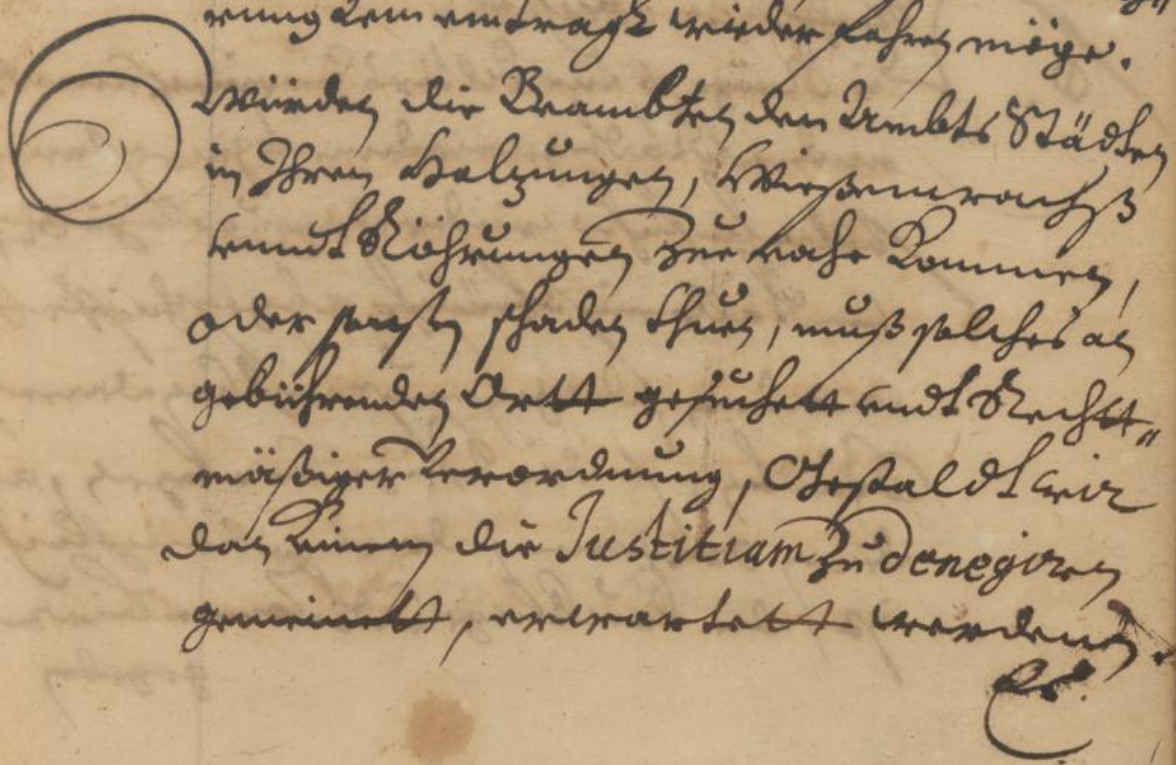 rung kein eintragk wieder fahren möge.
Würden die Beambten den Ambts Städten
in Ihren Holzungen, Wießenwachß
unndt Röhrungen Zue nahe Kommen,
oder sonsten schaden thuen, muß solches an
gebührenden Ortt gesuchett undt Rechtt-
mäßiger Verordnung, Gestaldt wir
dan Keinem die Justitiam Zu denegiren
gemeinett, erwartett werdenn.
Es